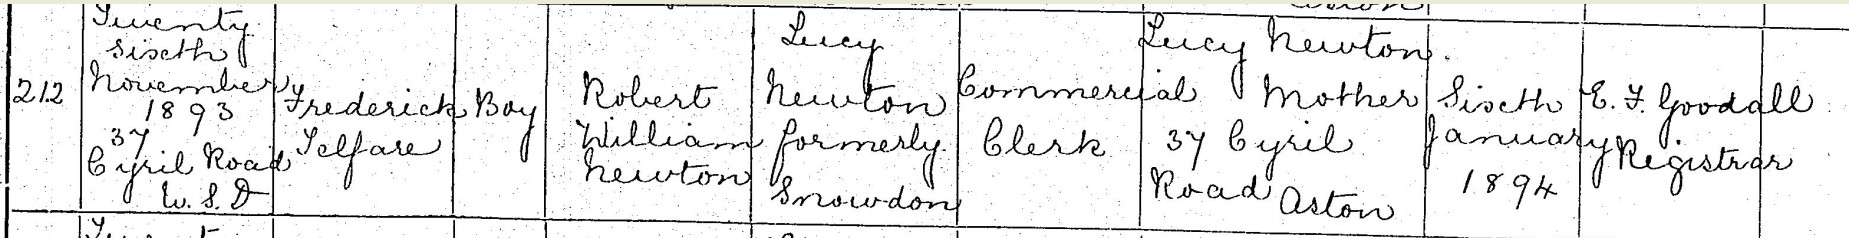 212
Twenty
sixth
November
1893
37
Cyril Road
U. S. D
Frederick
Telfare
Boy
Robert
William
Newton
Lucy
Newton
formerly
Snowdon
Commercial
Clerk
Lucy Newton.
Mother
37 Cyril
Road Aston
Sixth
January
1894
E. F. Goodall
Registrar